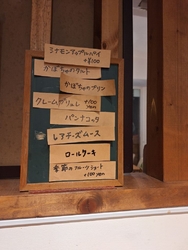 シナモンアップルパイ
+¥100
かぼちゃのタルト
かぼちゃのプリン
クレームブリュレ +100
パンナコッタ
レアチーズムース
ロールケーキ
季節のフルーツショート
+100yen